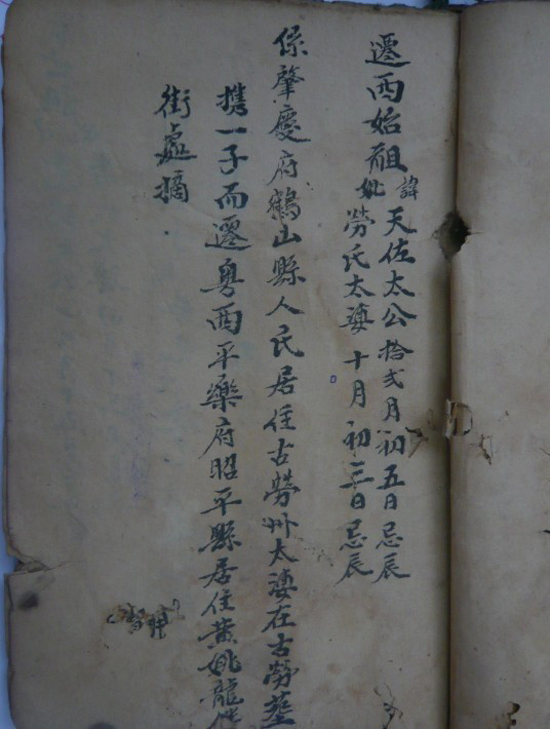 遷西始祖
諱天佐太公拾弍月初五日忌辰
妣勞氏太婆十月初三日忌辰
係肇慶府鶴山縣人氏居住古勞州太婆在古勞塟
携一子而遷粤西平樂府昭平縣居住黄姚龍
街處摘